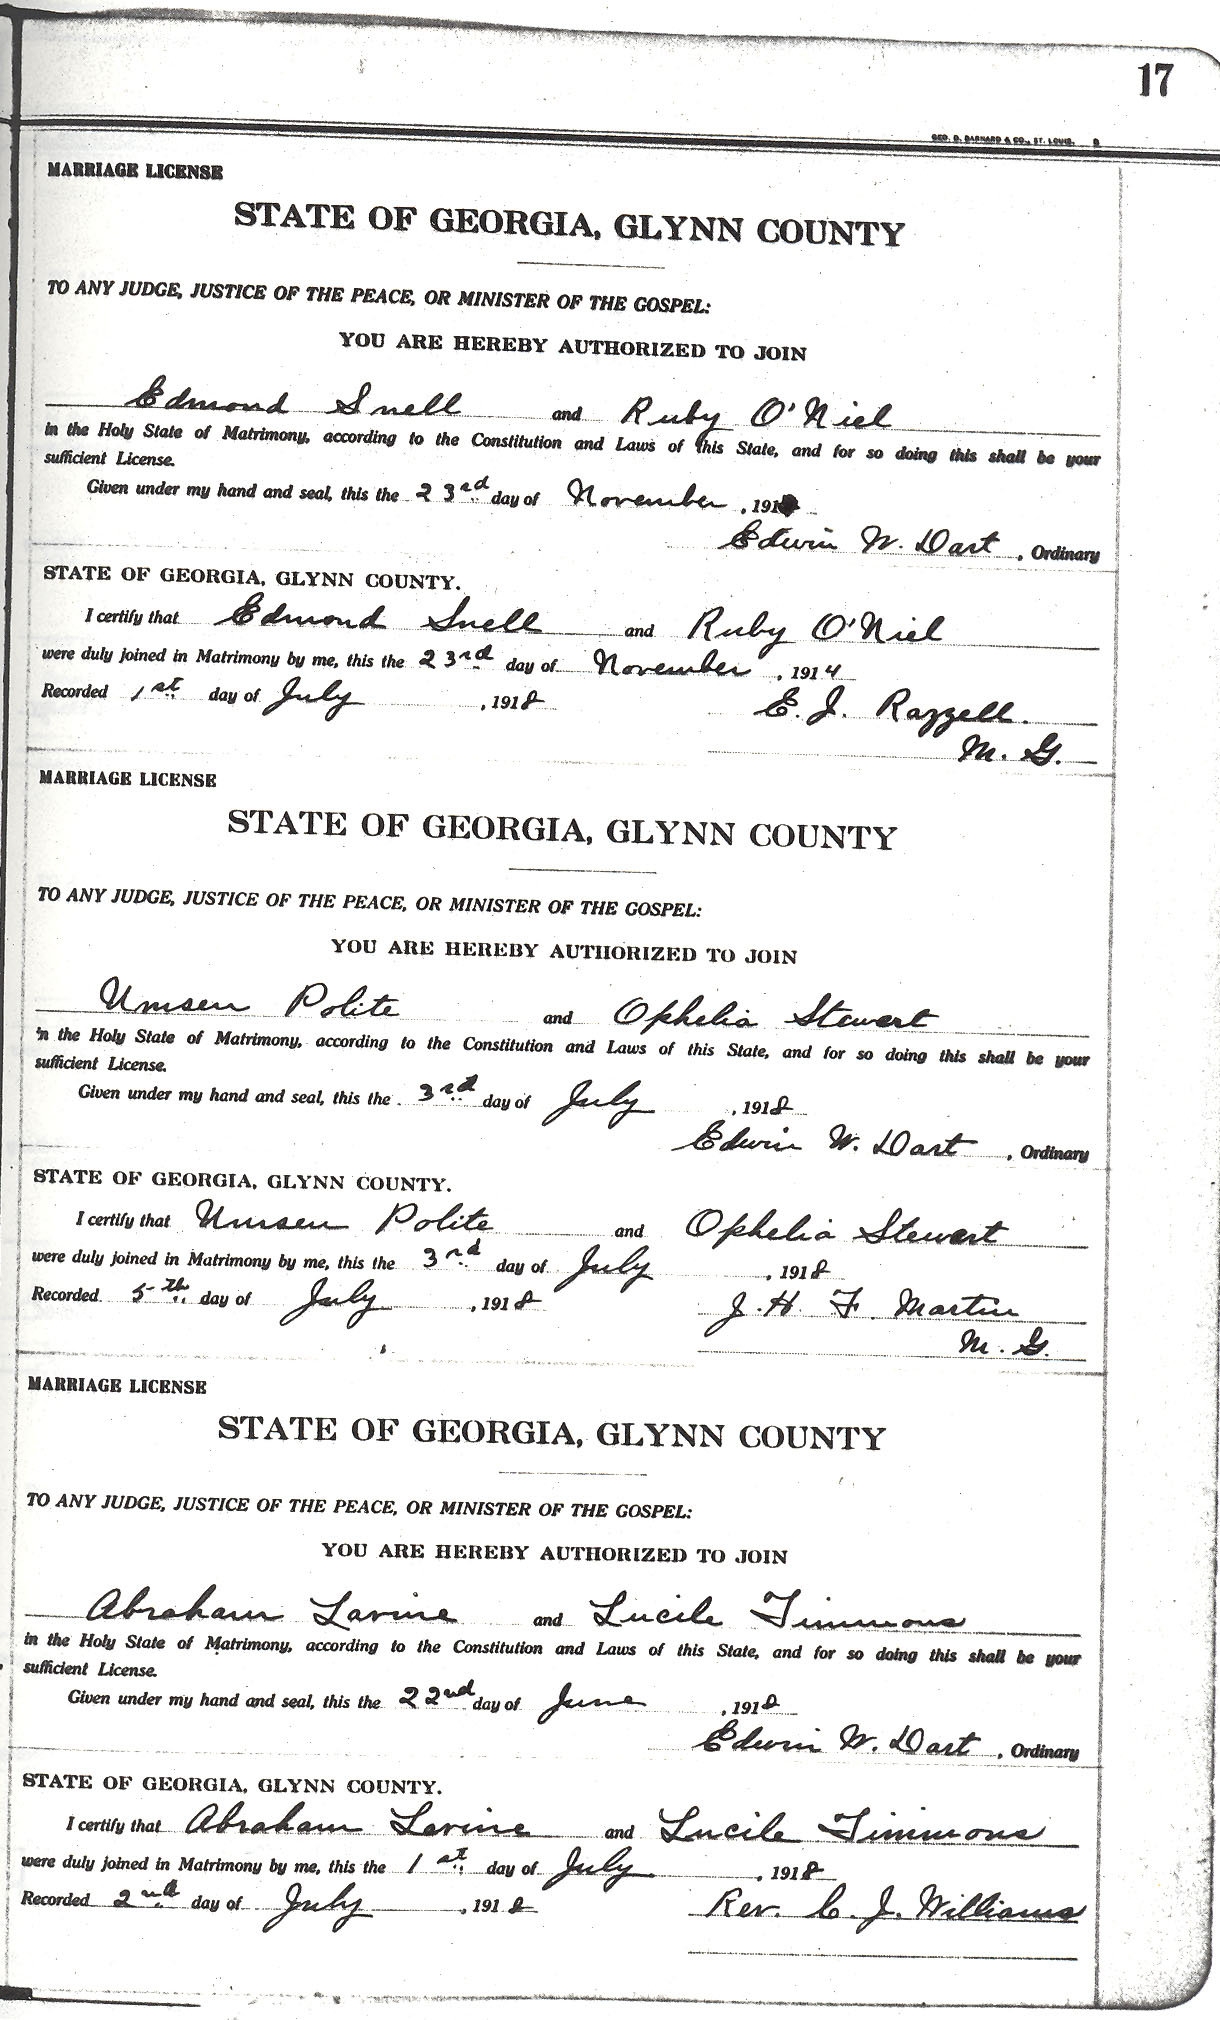 17
GEO. D. BARNARD & CO., ST. LOUIS.
MARRIAGE LICENSE
STATE OF GEORGIA, GLYNN COUNTY
TO ANY JUDGE, JUSTICE OF THE PEACE, OR MINISTER OF THE GOSPEL:
YOU ARE HEREBY AUTHORIZED TO JOIN
Edmond Snell and Ruby O'Niel
in the Holy State of Matrimony, according to the Constitution and Laws of this State, and for so doing this shall be your
sufficient License.
Given under my hand and seal, this the 23rd day of November, 191
Edwin W. Dart, Ordinary
STATE OF GEORGIA, GLYNN COUNTY.
I certify that Edmond Snell and Ruby O'Niel
were duly joined in Matrimony by me, this the 23rd day of November, 1914
Recorded 1st day of July, 1918 E. J. Razzell.
M. G.
MARRIAGE LICENSE
STATE OF GEORGIA, GLYNN COUNTY
TO ANY JUDGE, JUSTICE OF THE PEACE, OR MINISTER OF THE GOSPEL:
YOU ARE HEREBY AUTHORIZED TO JOIN
Umsen Polite and Ophelia Stewart
in the Holy State of Matrimony, according to the Constitution and Laws of this State, and for so doing this shall be your
sufficient License.
Given under my hand and seal, this the 3rd day of July, 1918
Edwin W. Dart, Ordinary
STATE OF GEORGIA, GLYNN COUNTY.
I certify that Umsen Polite and Ophelia Stewart
were duly joined in Matrimony by me, this the 3rd day of July, 1918
Recorded 5th day of July, 1918 J. H. F. Martin
M. G.
MARRIAGE LICENSE
STATE OF GEORGIA, GLYNN COUNTY
TO ANY JUDGE, JUSTICE OF THE PEACE, OR MINISTER OF THE GOSPEL:
YOU ARE HEREBY AUTHORIZED TO JOIN
Abraham Lavine and Lucile Timmons
in the Holy State of Matrimony, according to the Constitution and Laws of this State, and for so doing this shall be your
sufficient License.
Given under my hand and seal, this the 22nd day of June, 1918
Edwin W. Dart, Ordinary
STATE OF GEORGIA, GLYNN COUNTY.
I certify that Abraham Levine and Lucile Timmons
were duly joined in Matrimony by me, this the 1st day of July, 1918
Recorded 2nd day of July, 1918 Rev. C. J. Williams